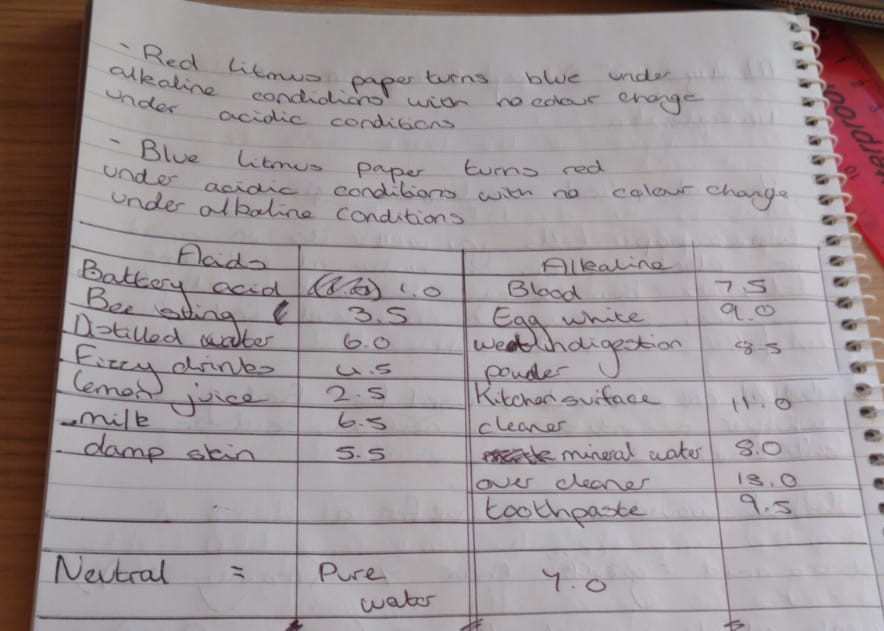 - Red litmus paper turns blue under
alkaline conditions with no colour change
under acidic conditions
- Blue litmus paper turns red
under acidic conditions with no colour change
under alkaline conditions
Acids Alkaline
Battery acid 1.0 Blood 7.5
Bee sting 3.5 Egg white 9.0
Distilled water 6.0 indigestion 8.5
powder
Fizzy drinks 4.5
Lemon juice 2.5 Kitchen surface 11.0
cleaner
milk 6.5
damp skin 5.5 mineral water 8.0
oven cleaner 13.0
toothpaste 9.5
Neutral = Pure 7.0
water